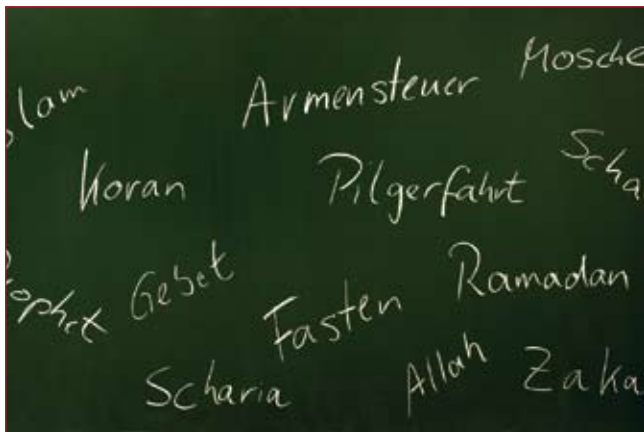 slam
Armensteuer
Mosche
Koran
Pilgerfahrt
Scha
Prophet
Gebet
Fasten
Ramadan
Scharia
Allah
Zaka